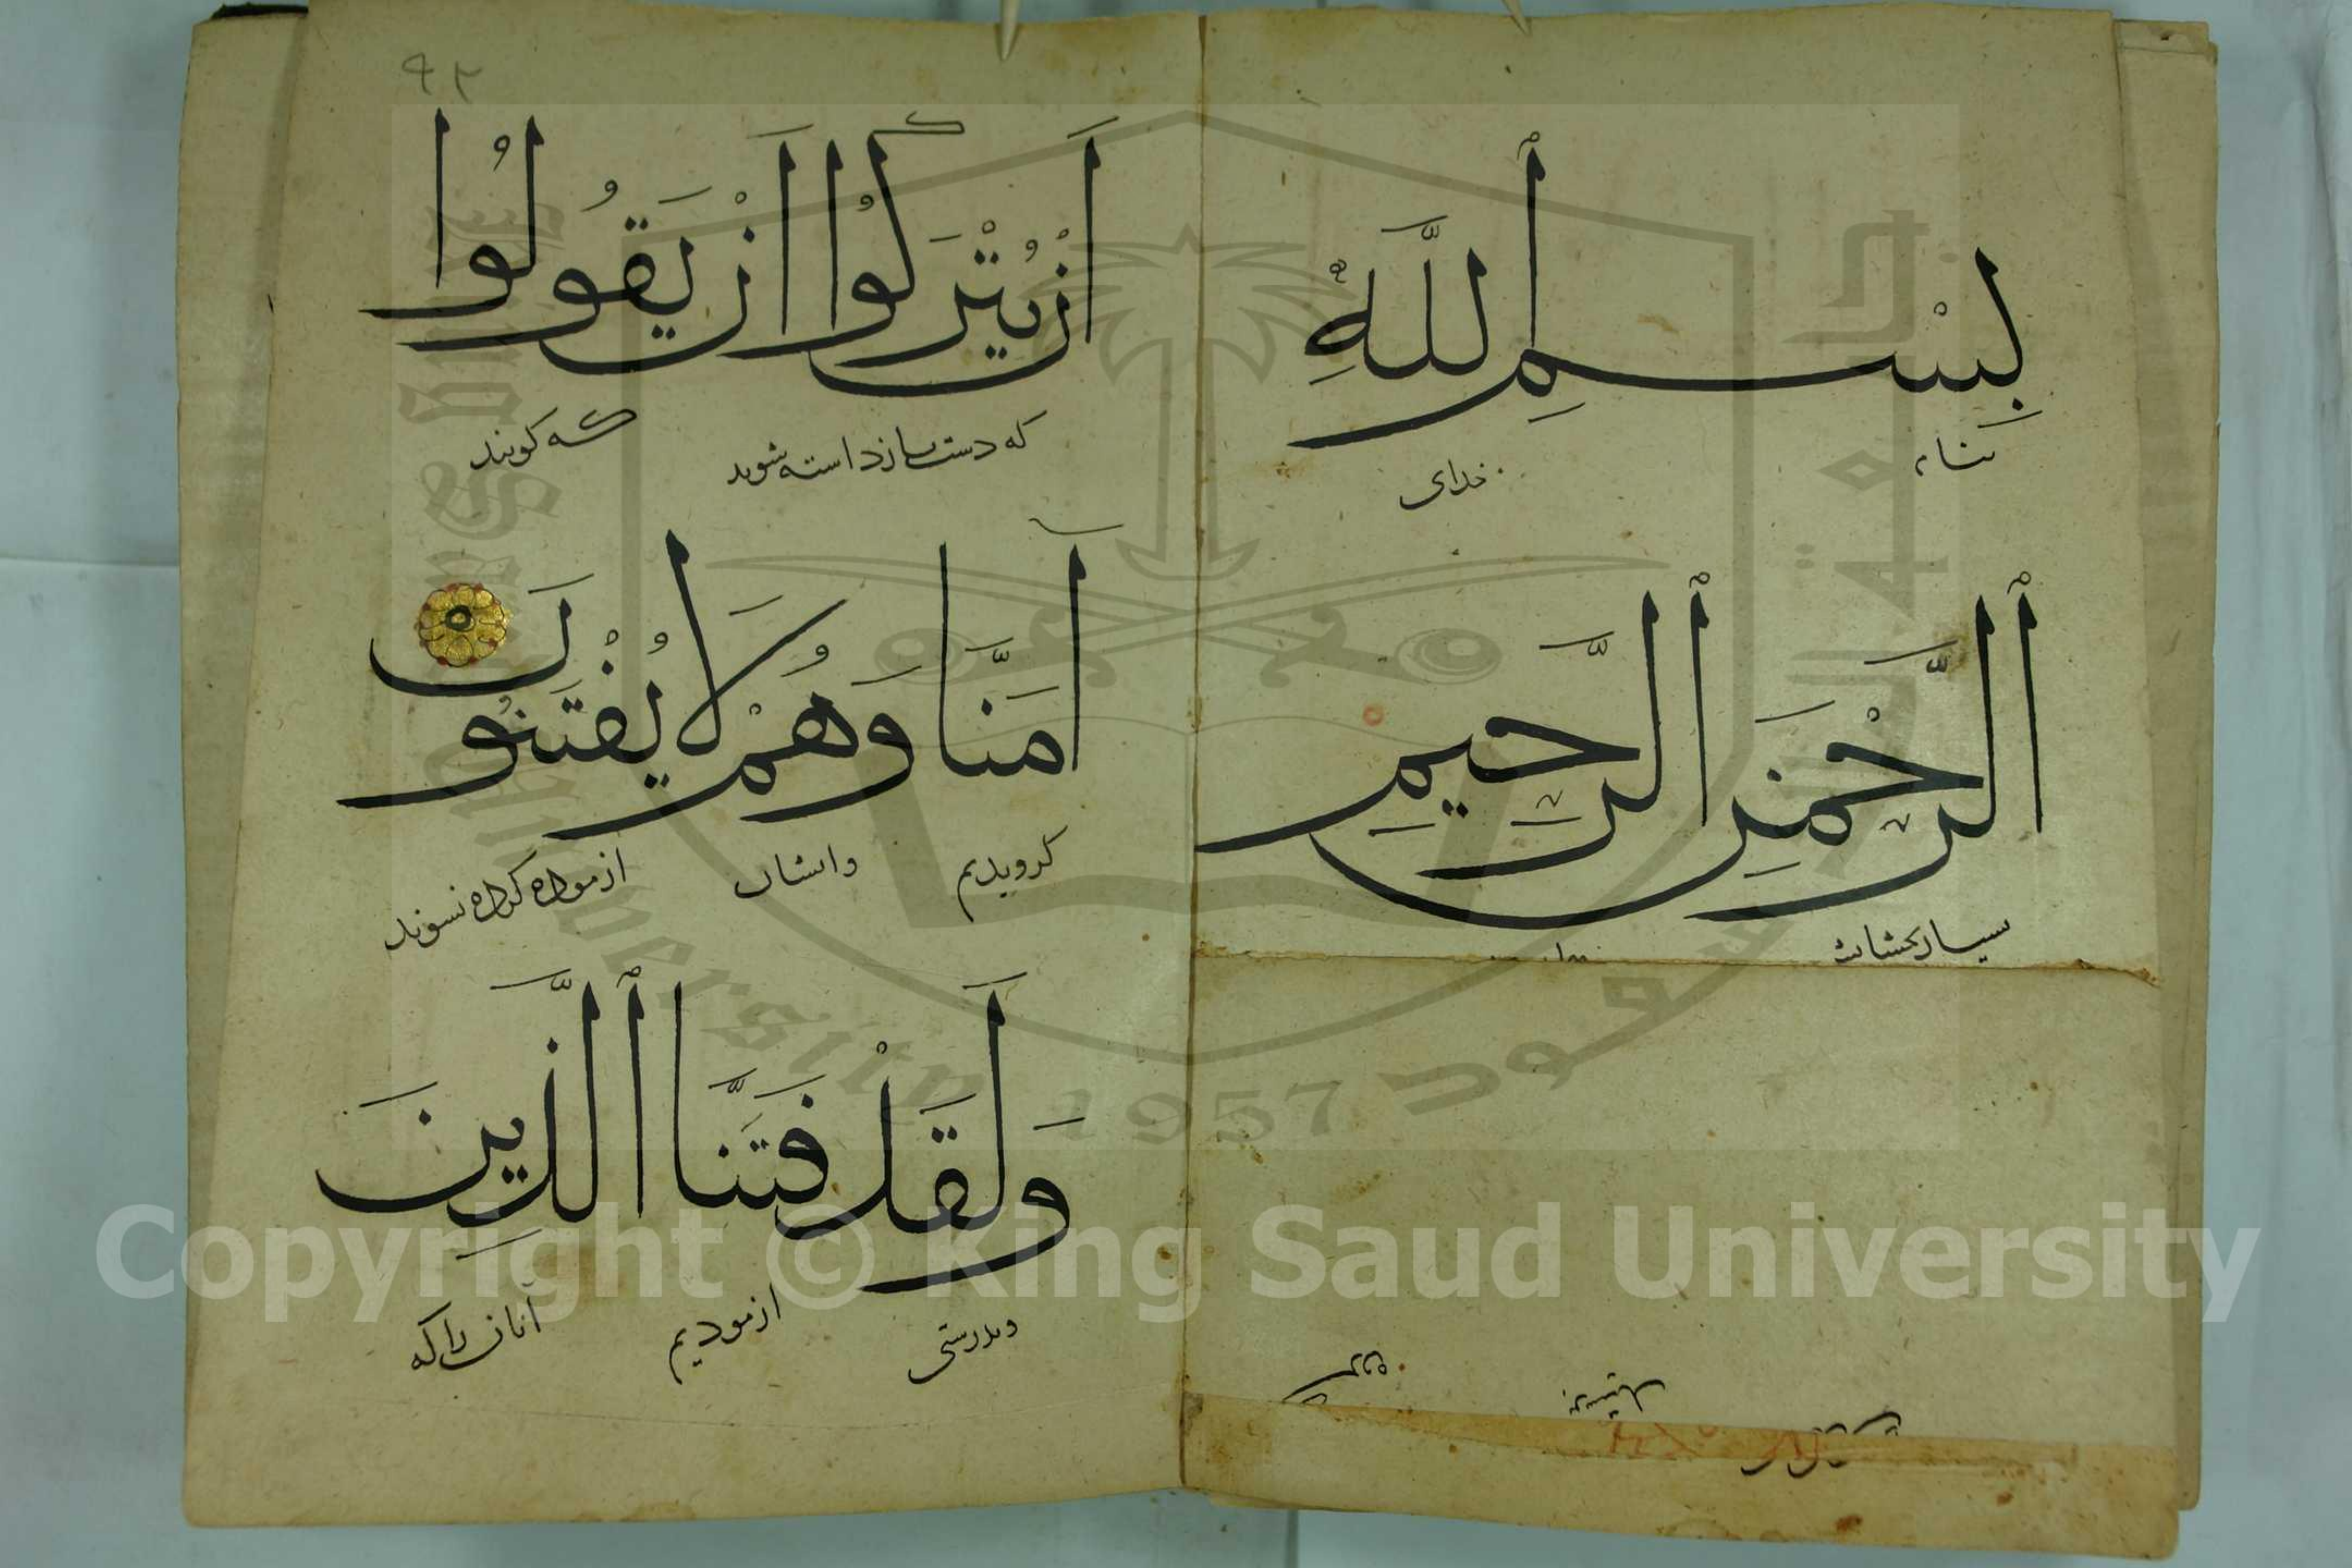 بِسْمِ ٱللَّهِ
بنام خدای
ٱلرَّحْمَنِ ٱلرَّحِيمِ
٩٢
أَنْ يُتْرَكُوا أَنْ يَقُولُوا
که دست بازداسته شوند که کویند
آمَنَّا وَهُمْ لَا يُفْتَنُونَ
کرویدیم وایشان ازموده کرده نسوند
وَلَقَدْ فَتَنَّا ٱلَّذِينَ
وبدرستی ازمودیم آنان را که
Copyright © King Saud University
1957